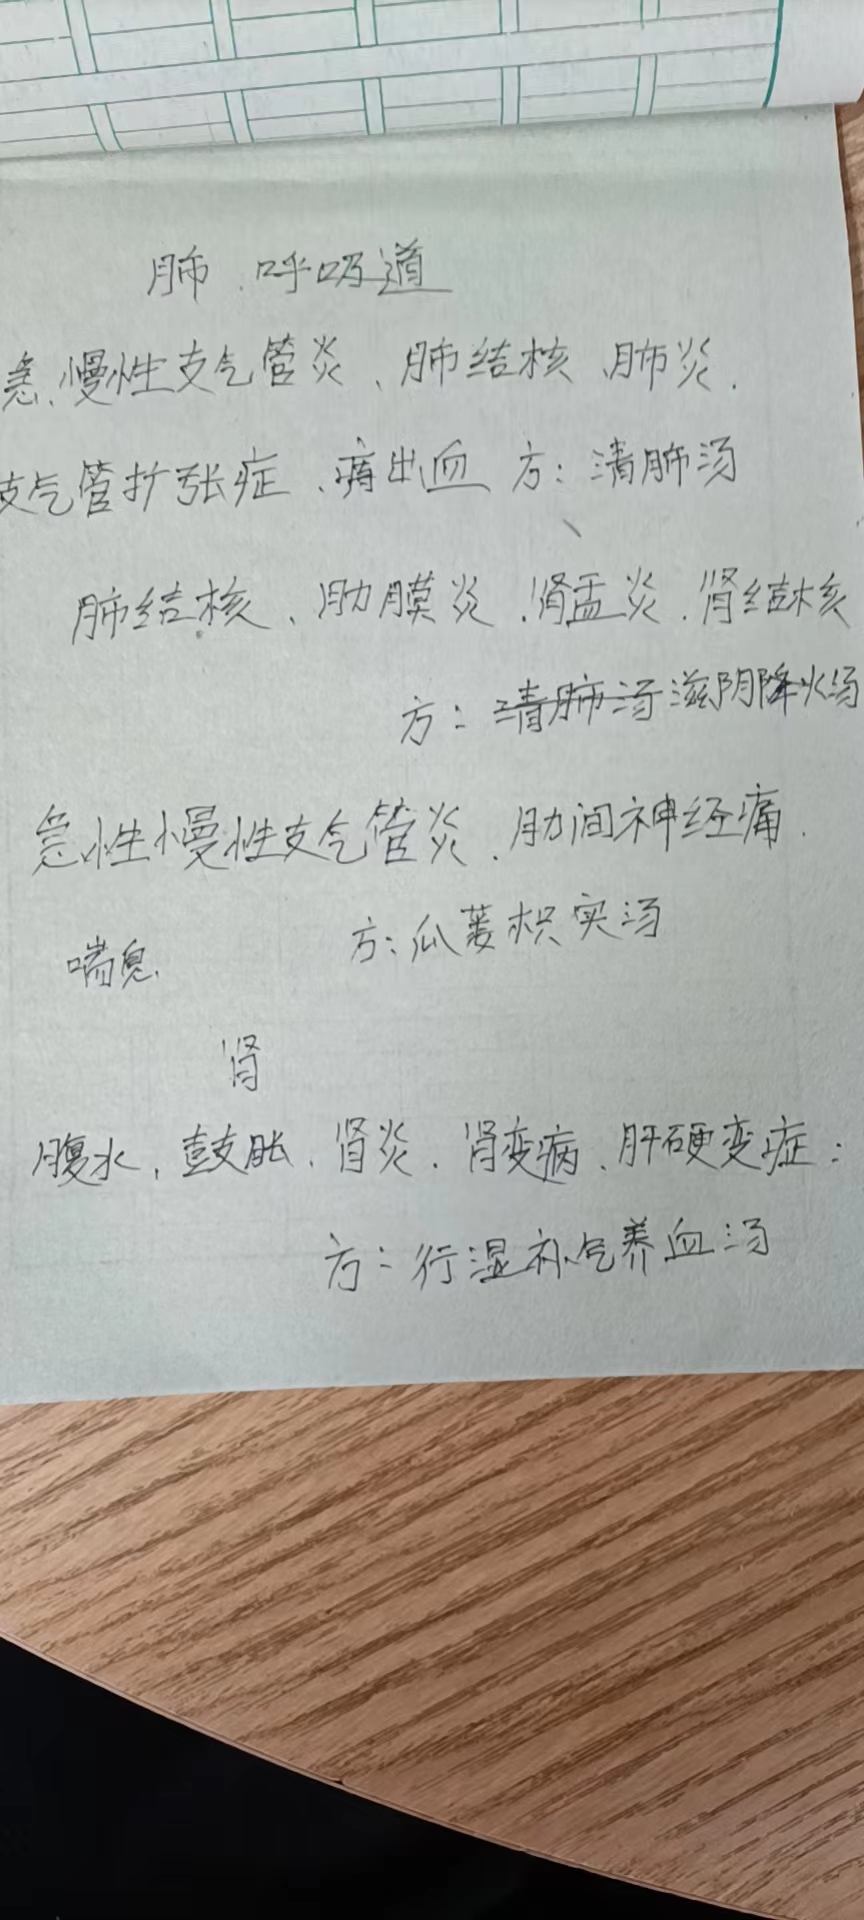 肺、呼吸道
急、慢性支气管炎、肺结核、肺炎、
支气管扩张症、痔出血 方：清肺汤
肺结核、肋膜炎、肾盂炎、肾结核
方：清肺汤 滋阴降火汤
急性慢性支气管炎、肋间神经痛、
喘息、 方：瓜蒌枳实汤
肾
腹水、鼓胀、肾炎、肾变病、肝硬变症：
方：行湿补气养血汤